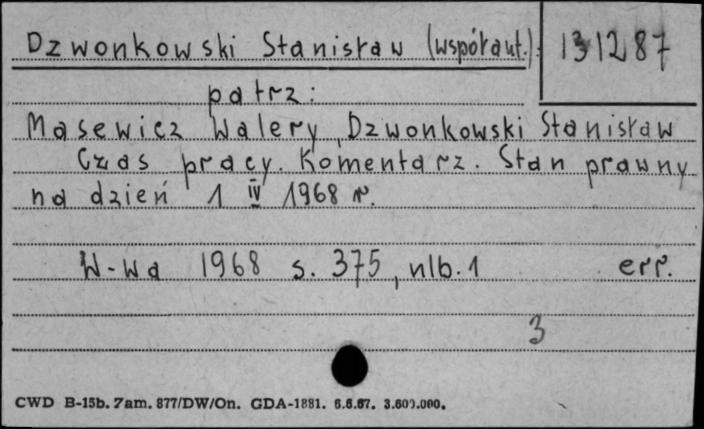 Dzwonkowski Stanisław (współaut.). 131287
patrz:
Masewicz Walery, Dzwonkowski Stanisław
Czas pracy. Komentarz. Stan prawny
na dzień 1 IV 1968 r.
W-wa 1968 s. 375, nlb. 1 err.
3
CWD B-15b. Zam. 877/DW/On. GDA-1881. 6.6.67. 3.600.000.